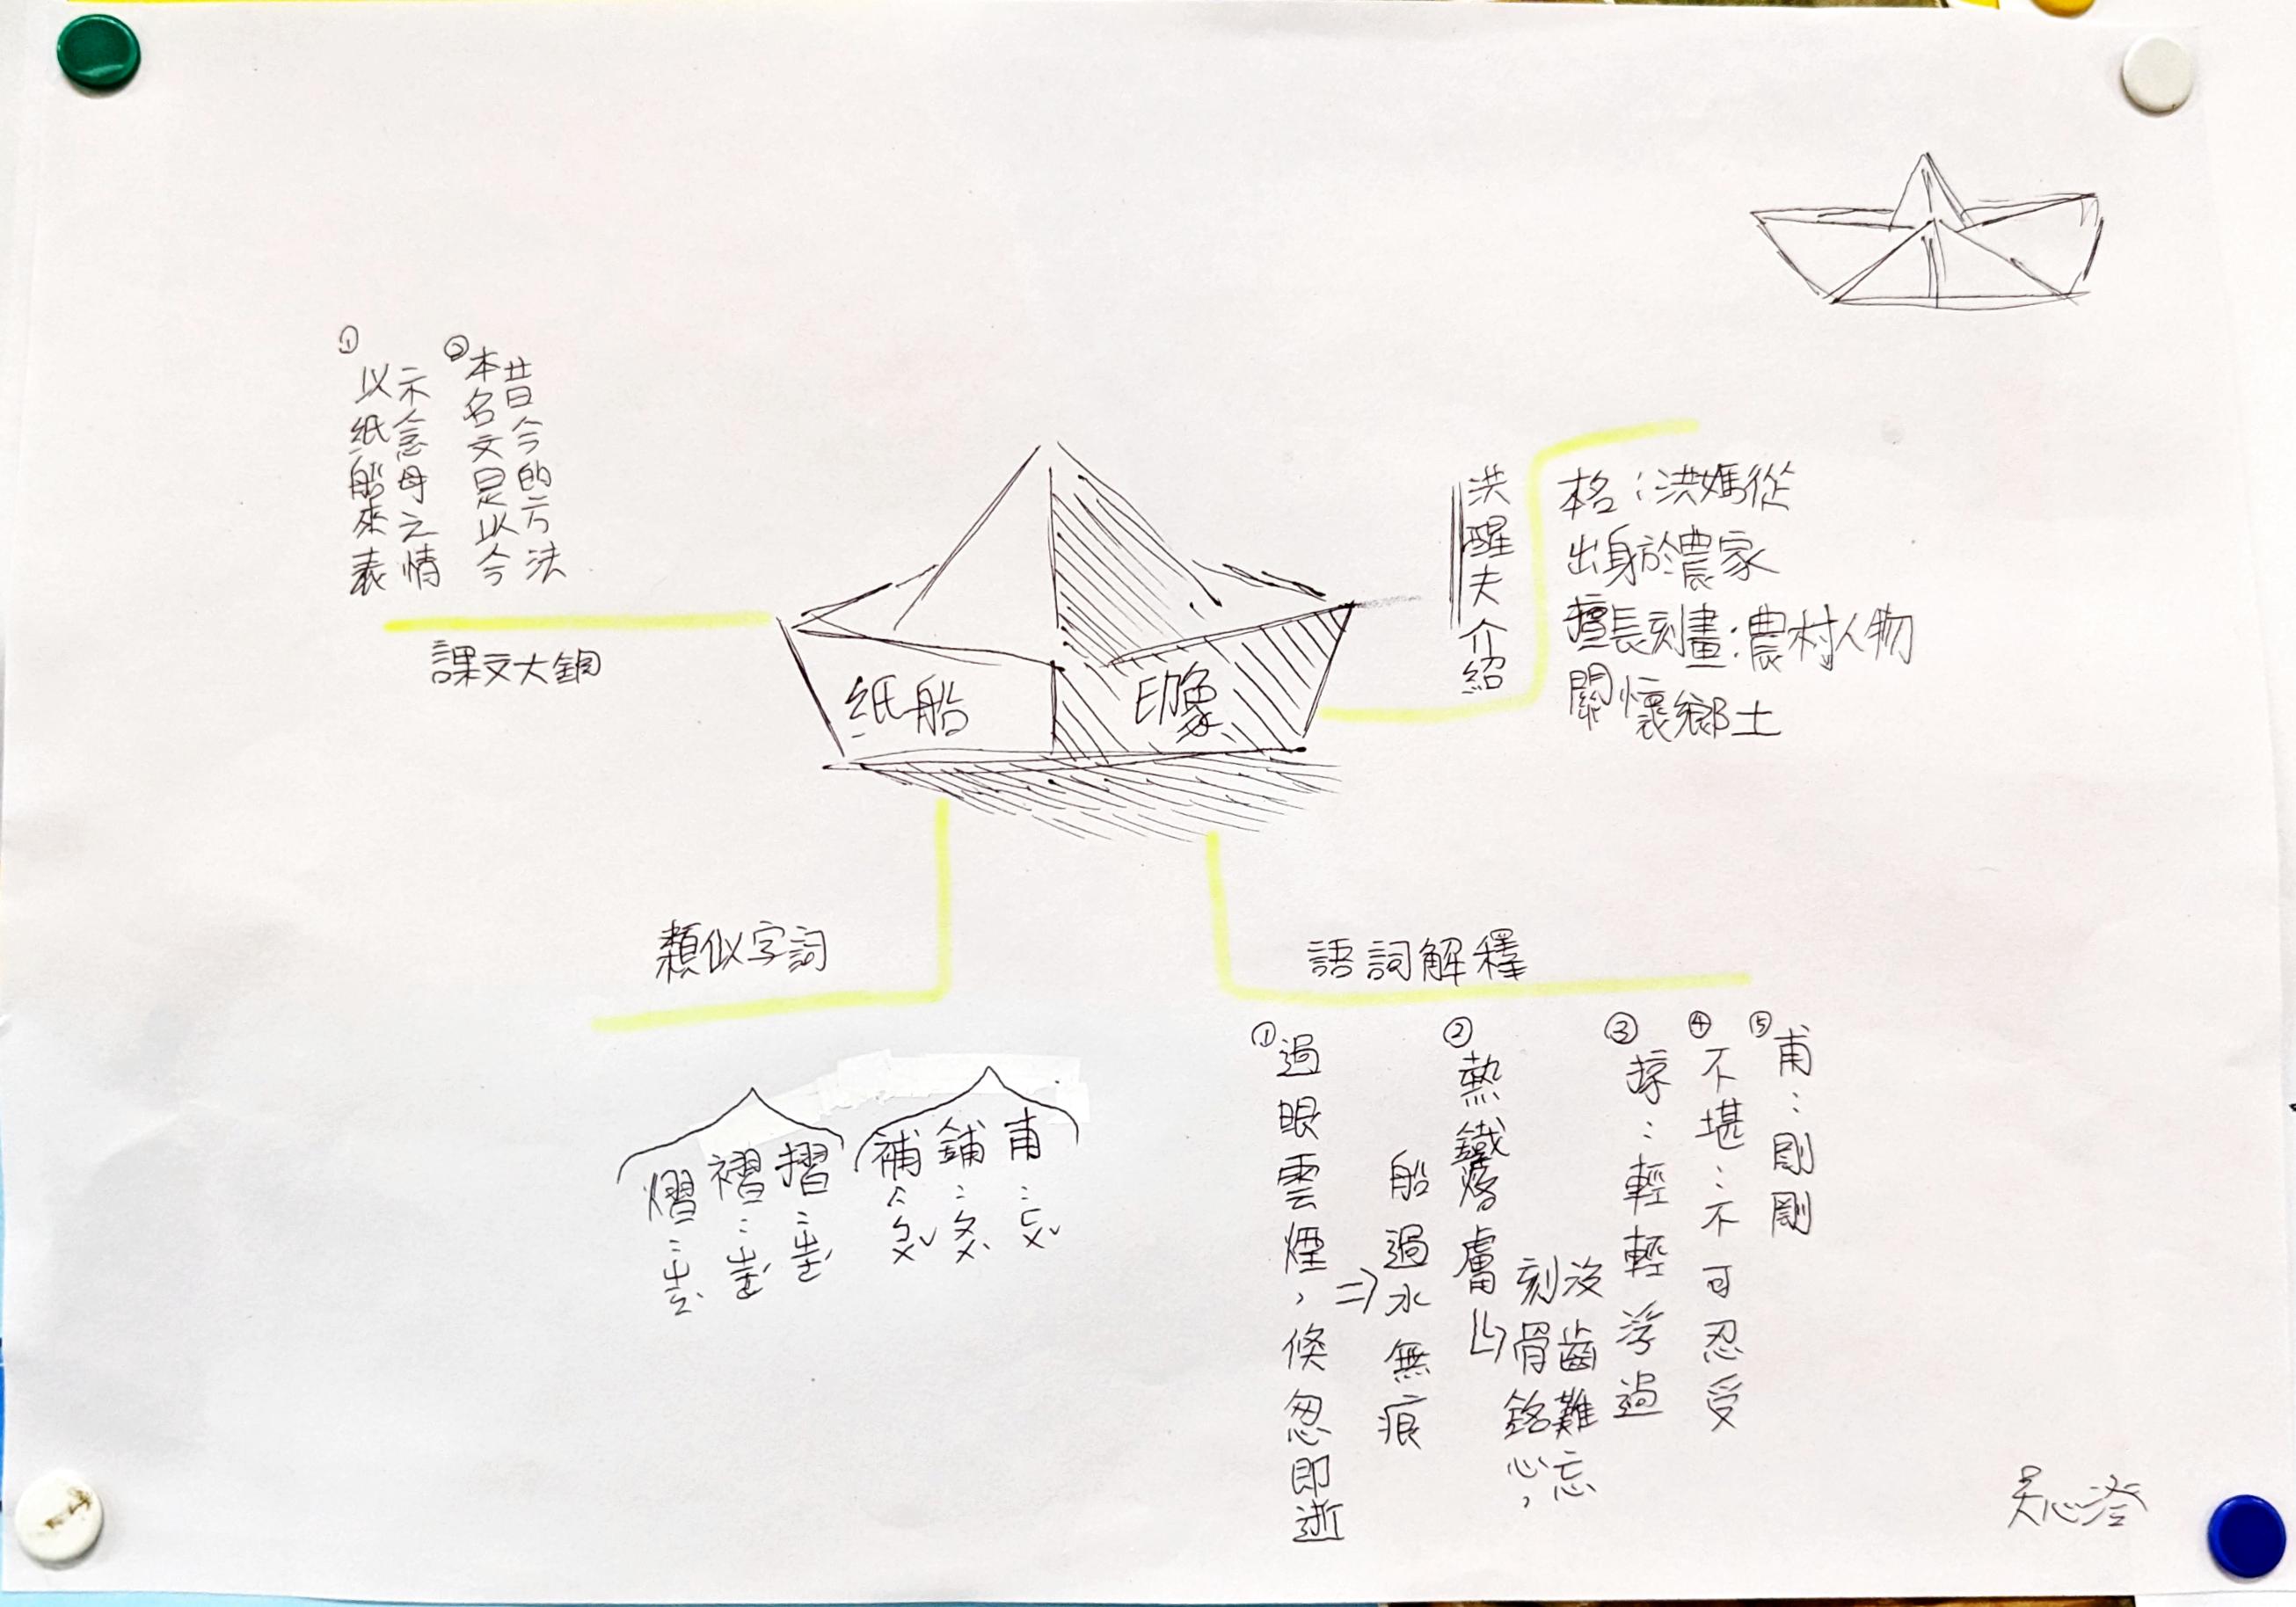 紙船
印象
課文大綱
①
以紙船來表
示念母之情
②
本名文是以今
昔今的方法
洪醒夫介紹
本格：洪媽從
出身於農家
擅長刻畫：農村人物
關懷鄉土
類似字詞
甫：ㄈㄨˇ
鋪：ㄆㄨˋ
補：ㄅㄨˇ
摺：ㄓㄜˊ
褶：ㄓㄜˊ
熠：
語詞解釋
①過眼雲煙，倏忽即逝
⇒船過水無痕
②熱鐵烙膚
刻骨銘心，
沒齒難忘
③掠：輕輕浮過
④不堪：不可忍受
⑤甫：剛剛
吳心澄